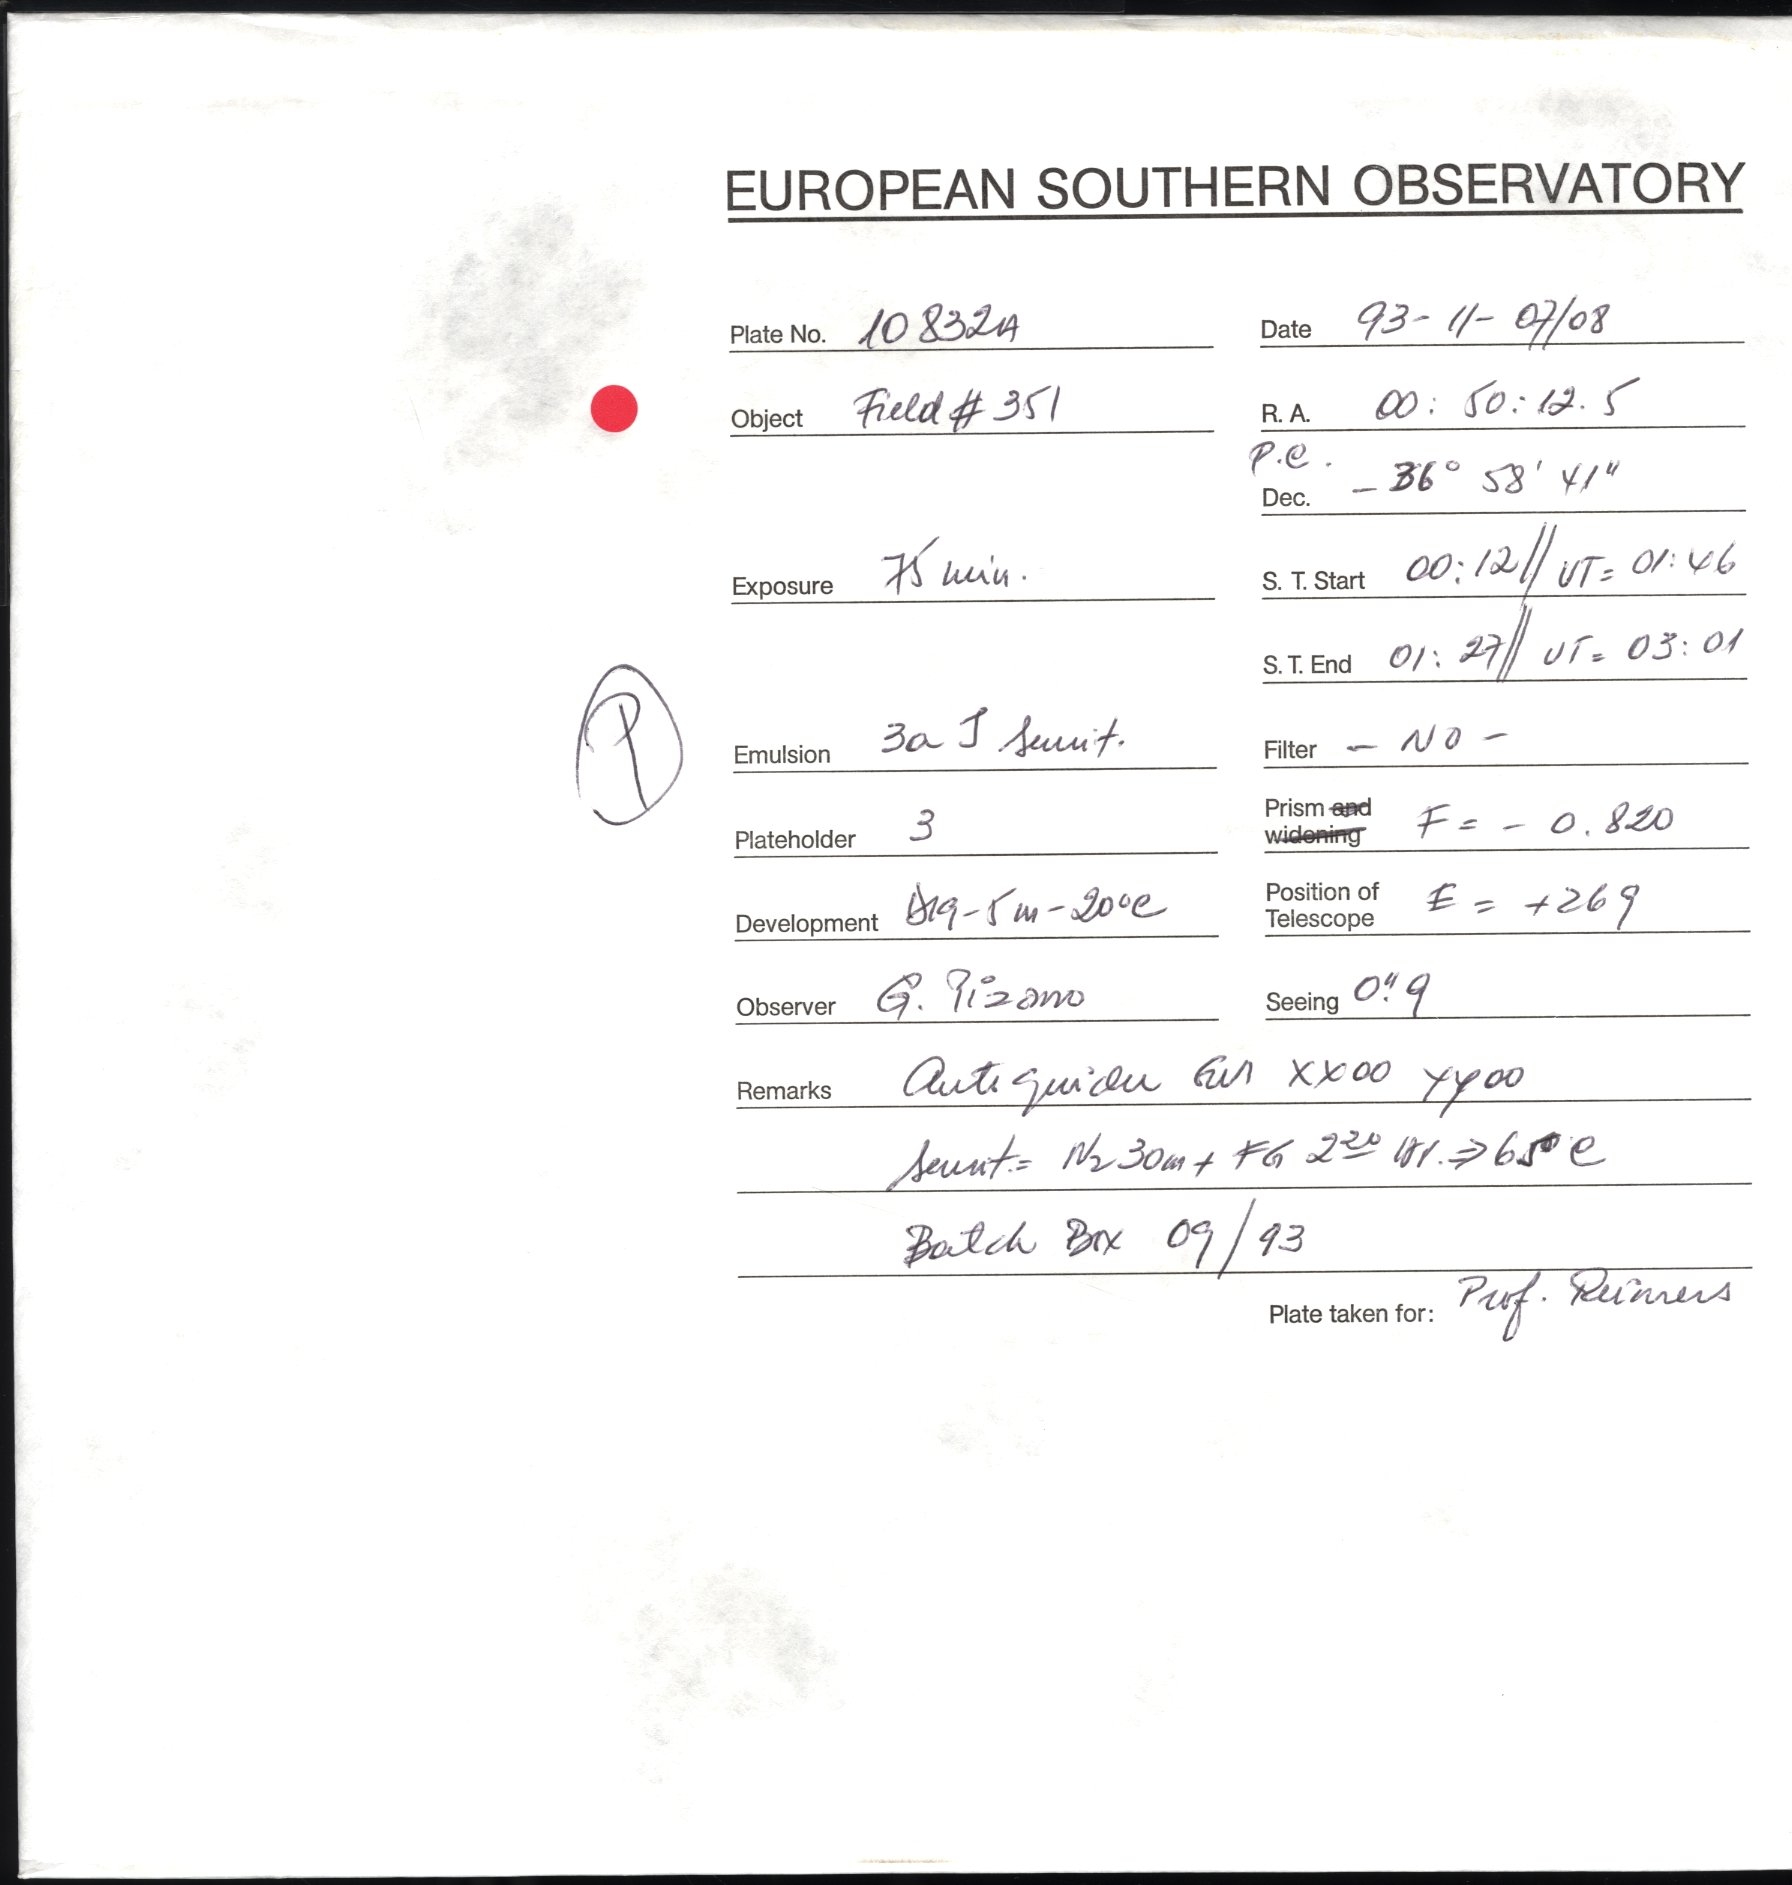 EUROPEAN SOUTHERN OBSERVATORY
Plate No. 10832A Date 93-11-07/08
Object Field # 351 R. A. 00: 50: 12.5
P.C.
Dec. - 36° 58' 41"
Exposure 75 min. S. T. Start 00:12 // UT= 01:46
S. T. End 01:27 // UT= 03:01
P
Emulsion 3a J Sensit. Filter - NO -
Plateholder 3 Prism and widening F = - 0.820
Development D19-5m-20°C Position of Telescope E = +269
Observer G. Pizarro Seeing 0".9
Remarks Autoguider XX00 YY00
Sensit.= N2 30m + FG 2 20 Hr. ⇒ 65°C
Batch Box 09/93
Plate taken for: Prof. Reimers